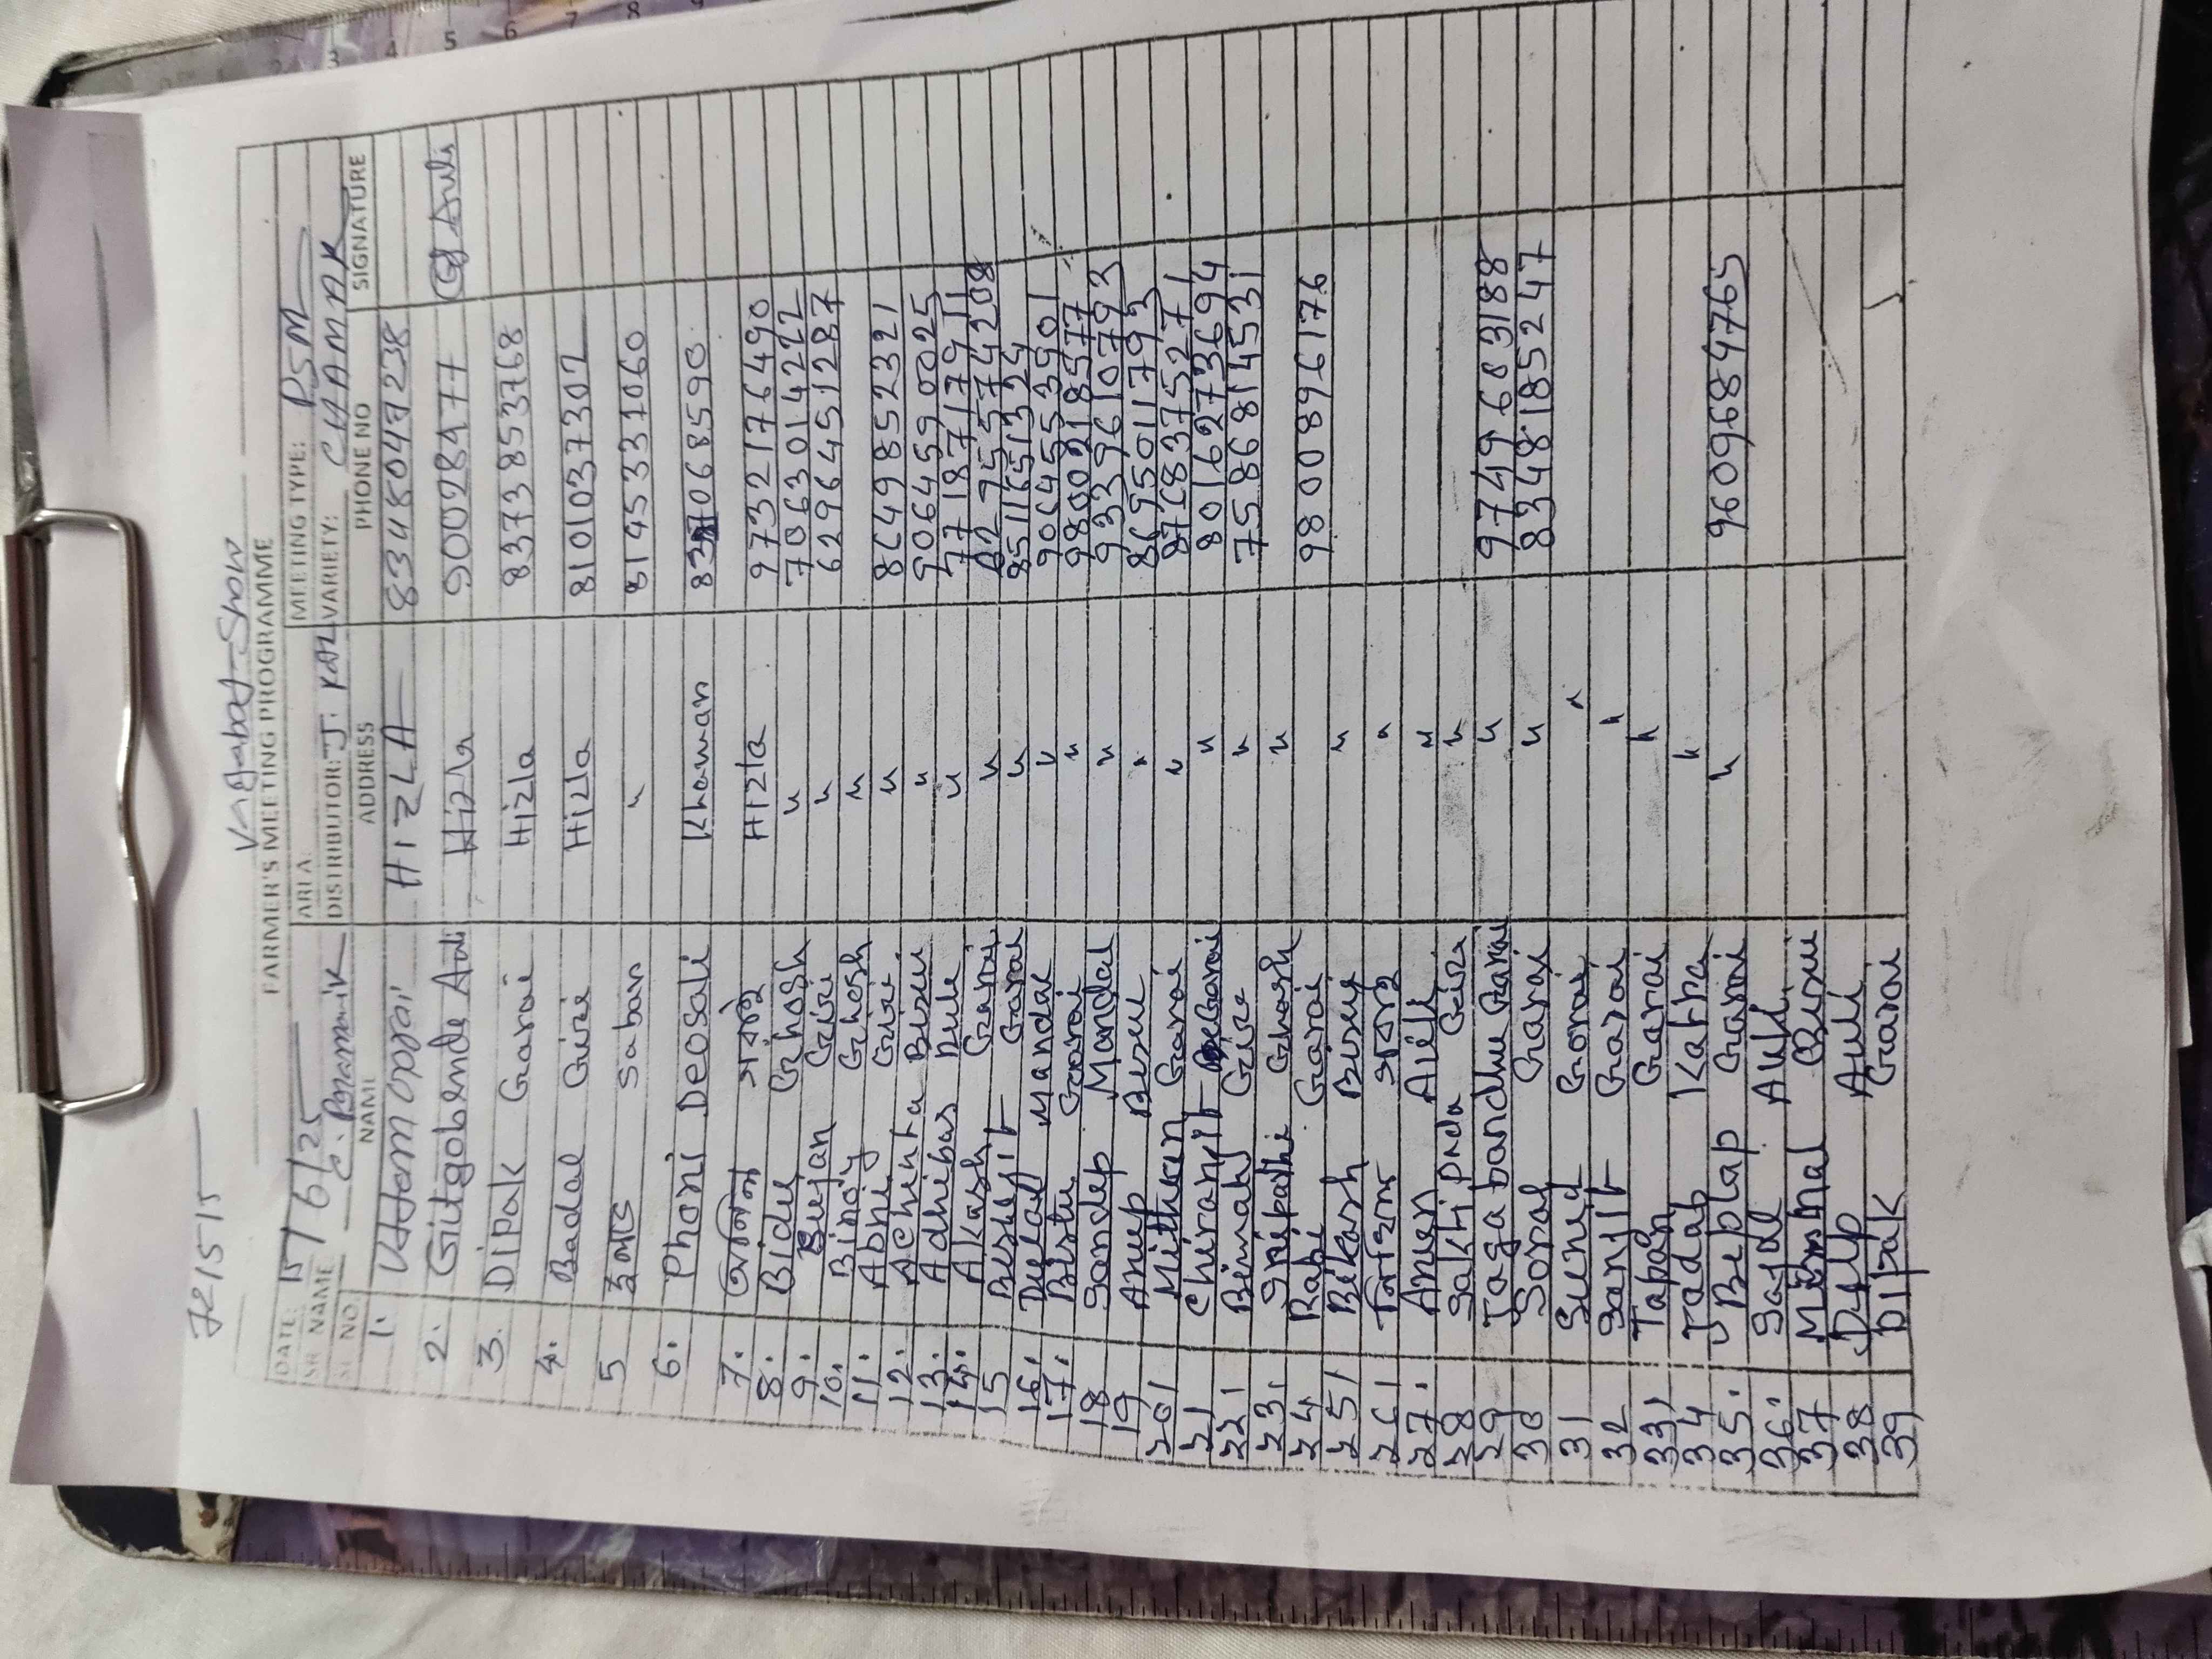 72/5/5
FARMER'S MEETING PROGRAMME
DATE: 15/6/25 AREA: MEETING TYPE: PSM
SR NAME C. Paramanik DISTRIBUTOR: J. KALI VARIETY: CHAMAK
SL NO. NAME ADDRESS PHONE NO SIGNATURE
1. Uttam HIZLA 8348048238
2. Gitgobinda Auli Hizla 900028477
3. Dipak Garai Hizla 8373853768
4. Badal Giri Hizla 8101037302
5 Saban " 8145337060
6. Phoni Deosali Khaman 8370685590
7. Hizla 9732176490
8. Bidu Ghosh " 7063014222
9. Sujan Giri " 6296451287
10. Binoy Ghosh "
11. Abhi Giri " 8649852321
12. Achinta Bisui " 9064590025
13. Adhibas Rule " 7718717911
14. Akash Garai " 8295574208
15 Bisujit Garai " 8511651324
16. Dulal Mandal " 9064553901
17. Bistu Garai " 9800218577
18 Sandep Mandal " 9339610793
19 Anup Bisui " 8695011793
২০। Mithun Garai " 8768375271
২১ Chiranjit Garai " 8016273694
২২। Bimal Giri " 7586814531
২৩। Sripathi Ghosh "
২৪ Rabi Garai 9800896176
২৫। Bikash Bisui "
২৬। "
২৭. Anup Auli "
২৮ Sakti pada Giri "
২৯ Jaga bandhu Garai " 9749683188
30 Sorap Garai " 8348185247
31 Sunud Garai "
32 Sanjit Garai "
33, Tapan Garai "
34 Jadab Katra "
35. Biplap Garai " 9609684765
36. Auli
37 Bisui
38 Dilip Auli
39 Dipak Garai